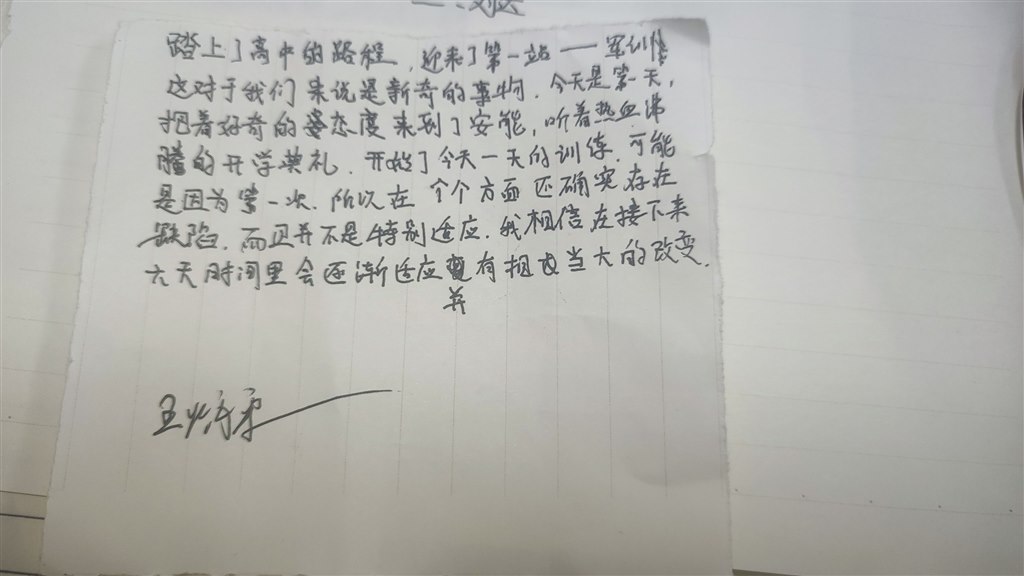 踏上了高中的路程，迎来了第一站——军训！
这对于我们来说是新奇的事物．今天是第一天，
抱着好奇的态度来到了安能，听着热血沸
腾的开学典礼．开始了今天一天的训练．可能
是因为第一次．所以在个个方面还确实存在
缺陷．而且并不是特别适应．我相信在接下来
六天时间里会逐渐适应并有相当大的改变．